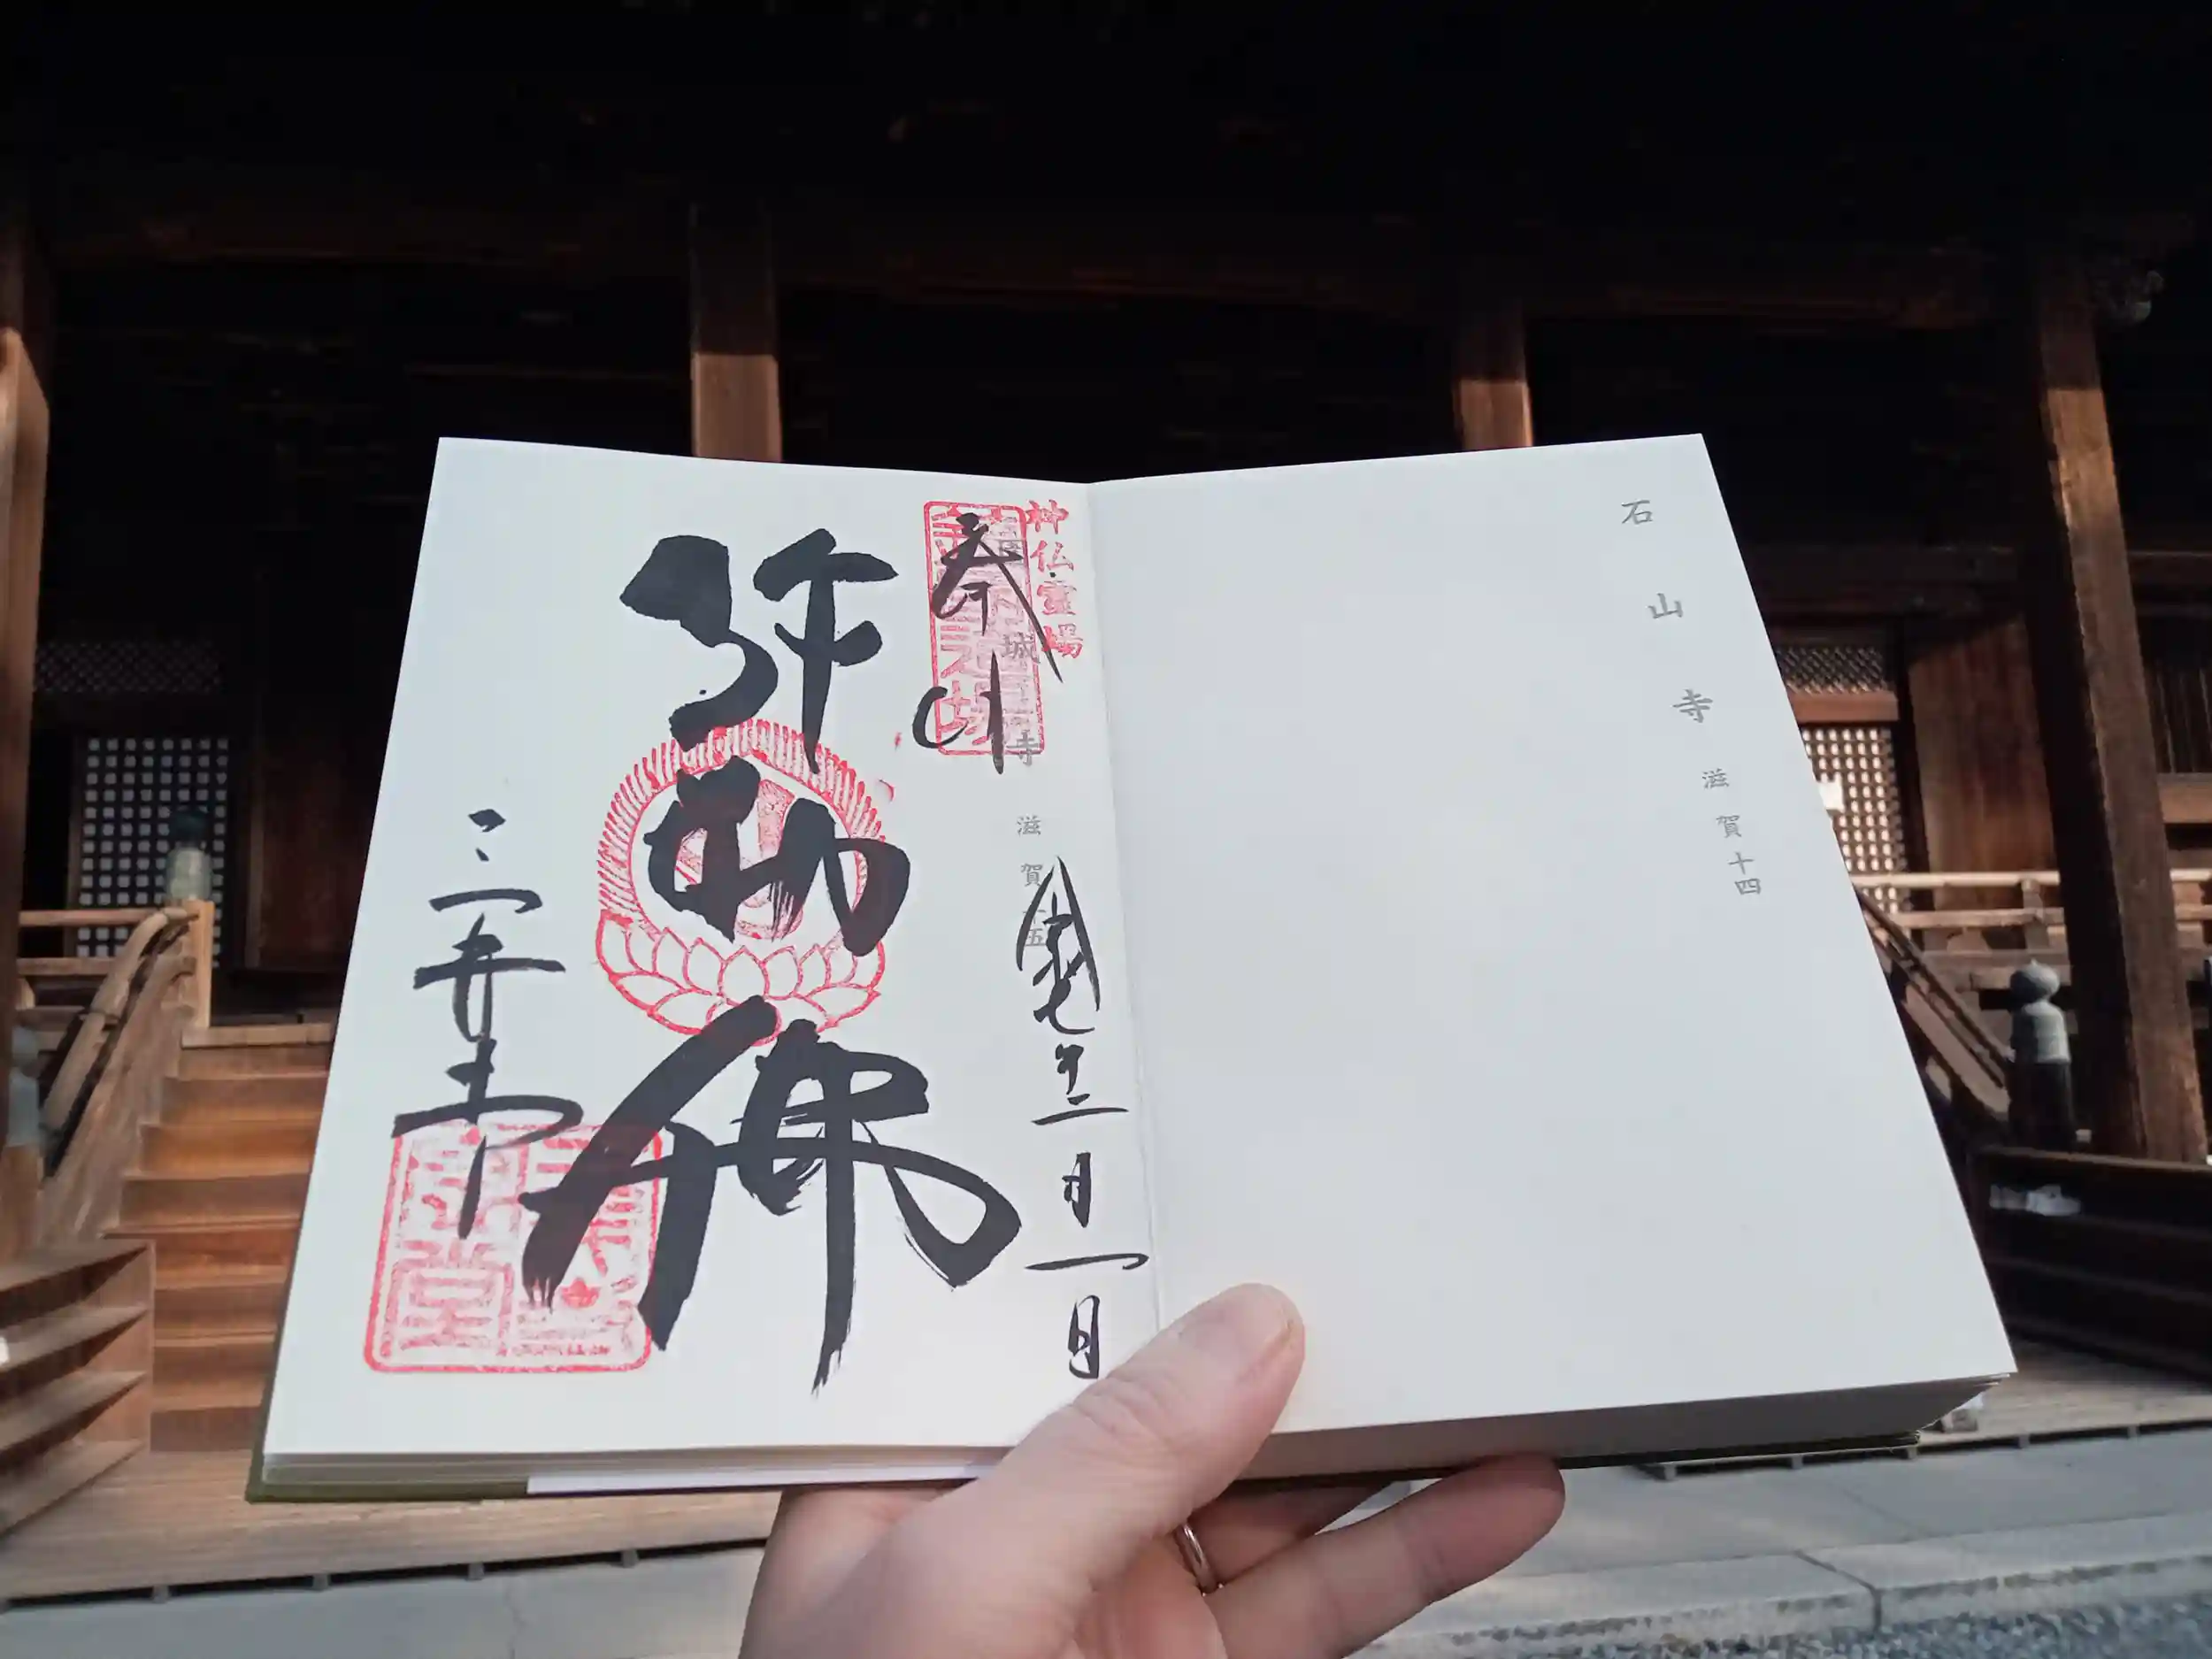 石山寺 滋賀十四
神仏霊場
城寺 滋賀 五
奉
令和七年二月一日
弥勒佛
三井寺
堂